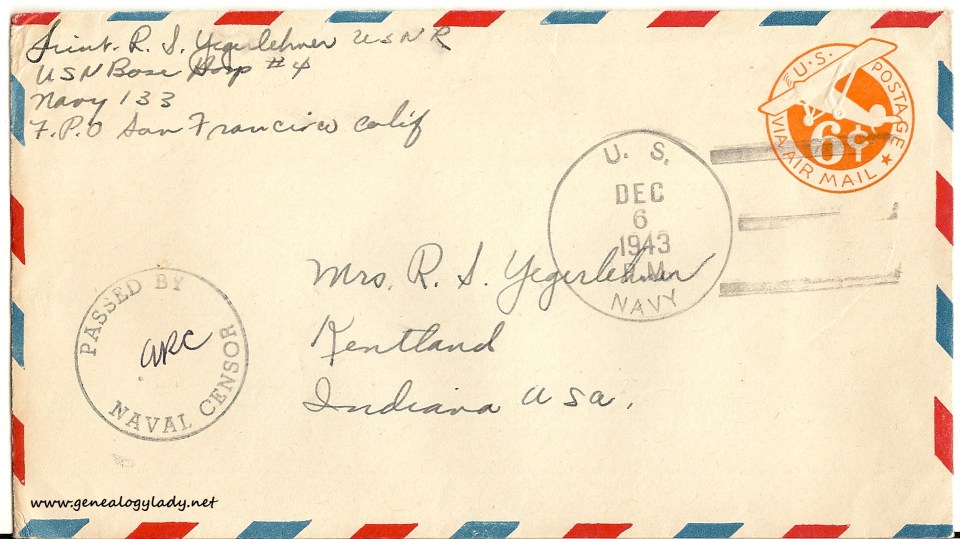 Lieut. R. S. Yegerlehner USNR
USN Base Hosp #4
Navy 133
F.P.O San Francisco Calif
U.S. POSTAGE
6¢
VIA AIR MAIL
U. S.
DEC
6
1943
P.M.
NAVY
Mrs. R. S. Yegerlehner
Kentland
Indiana USA.
PASSED BY
ARC
NAVAL CENSOR
www.genealogylady.net